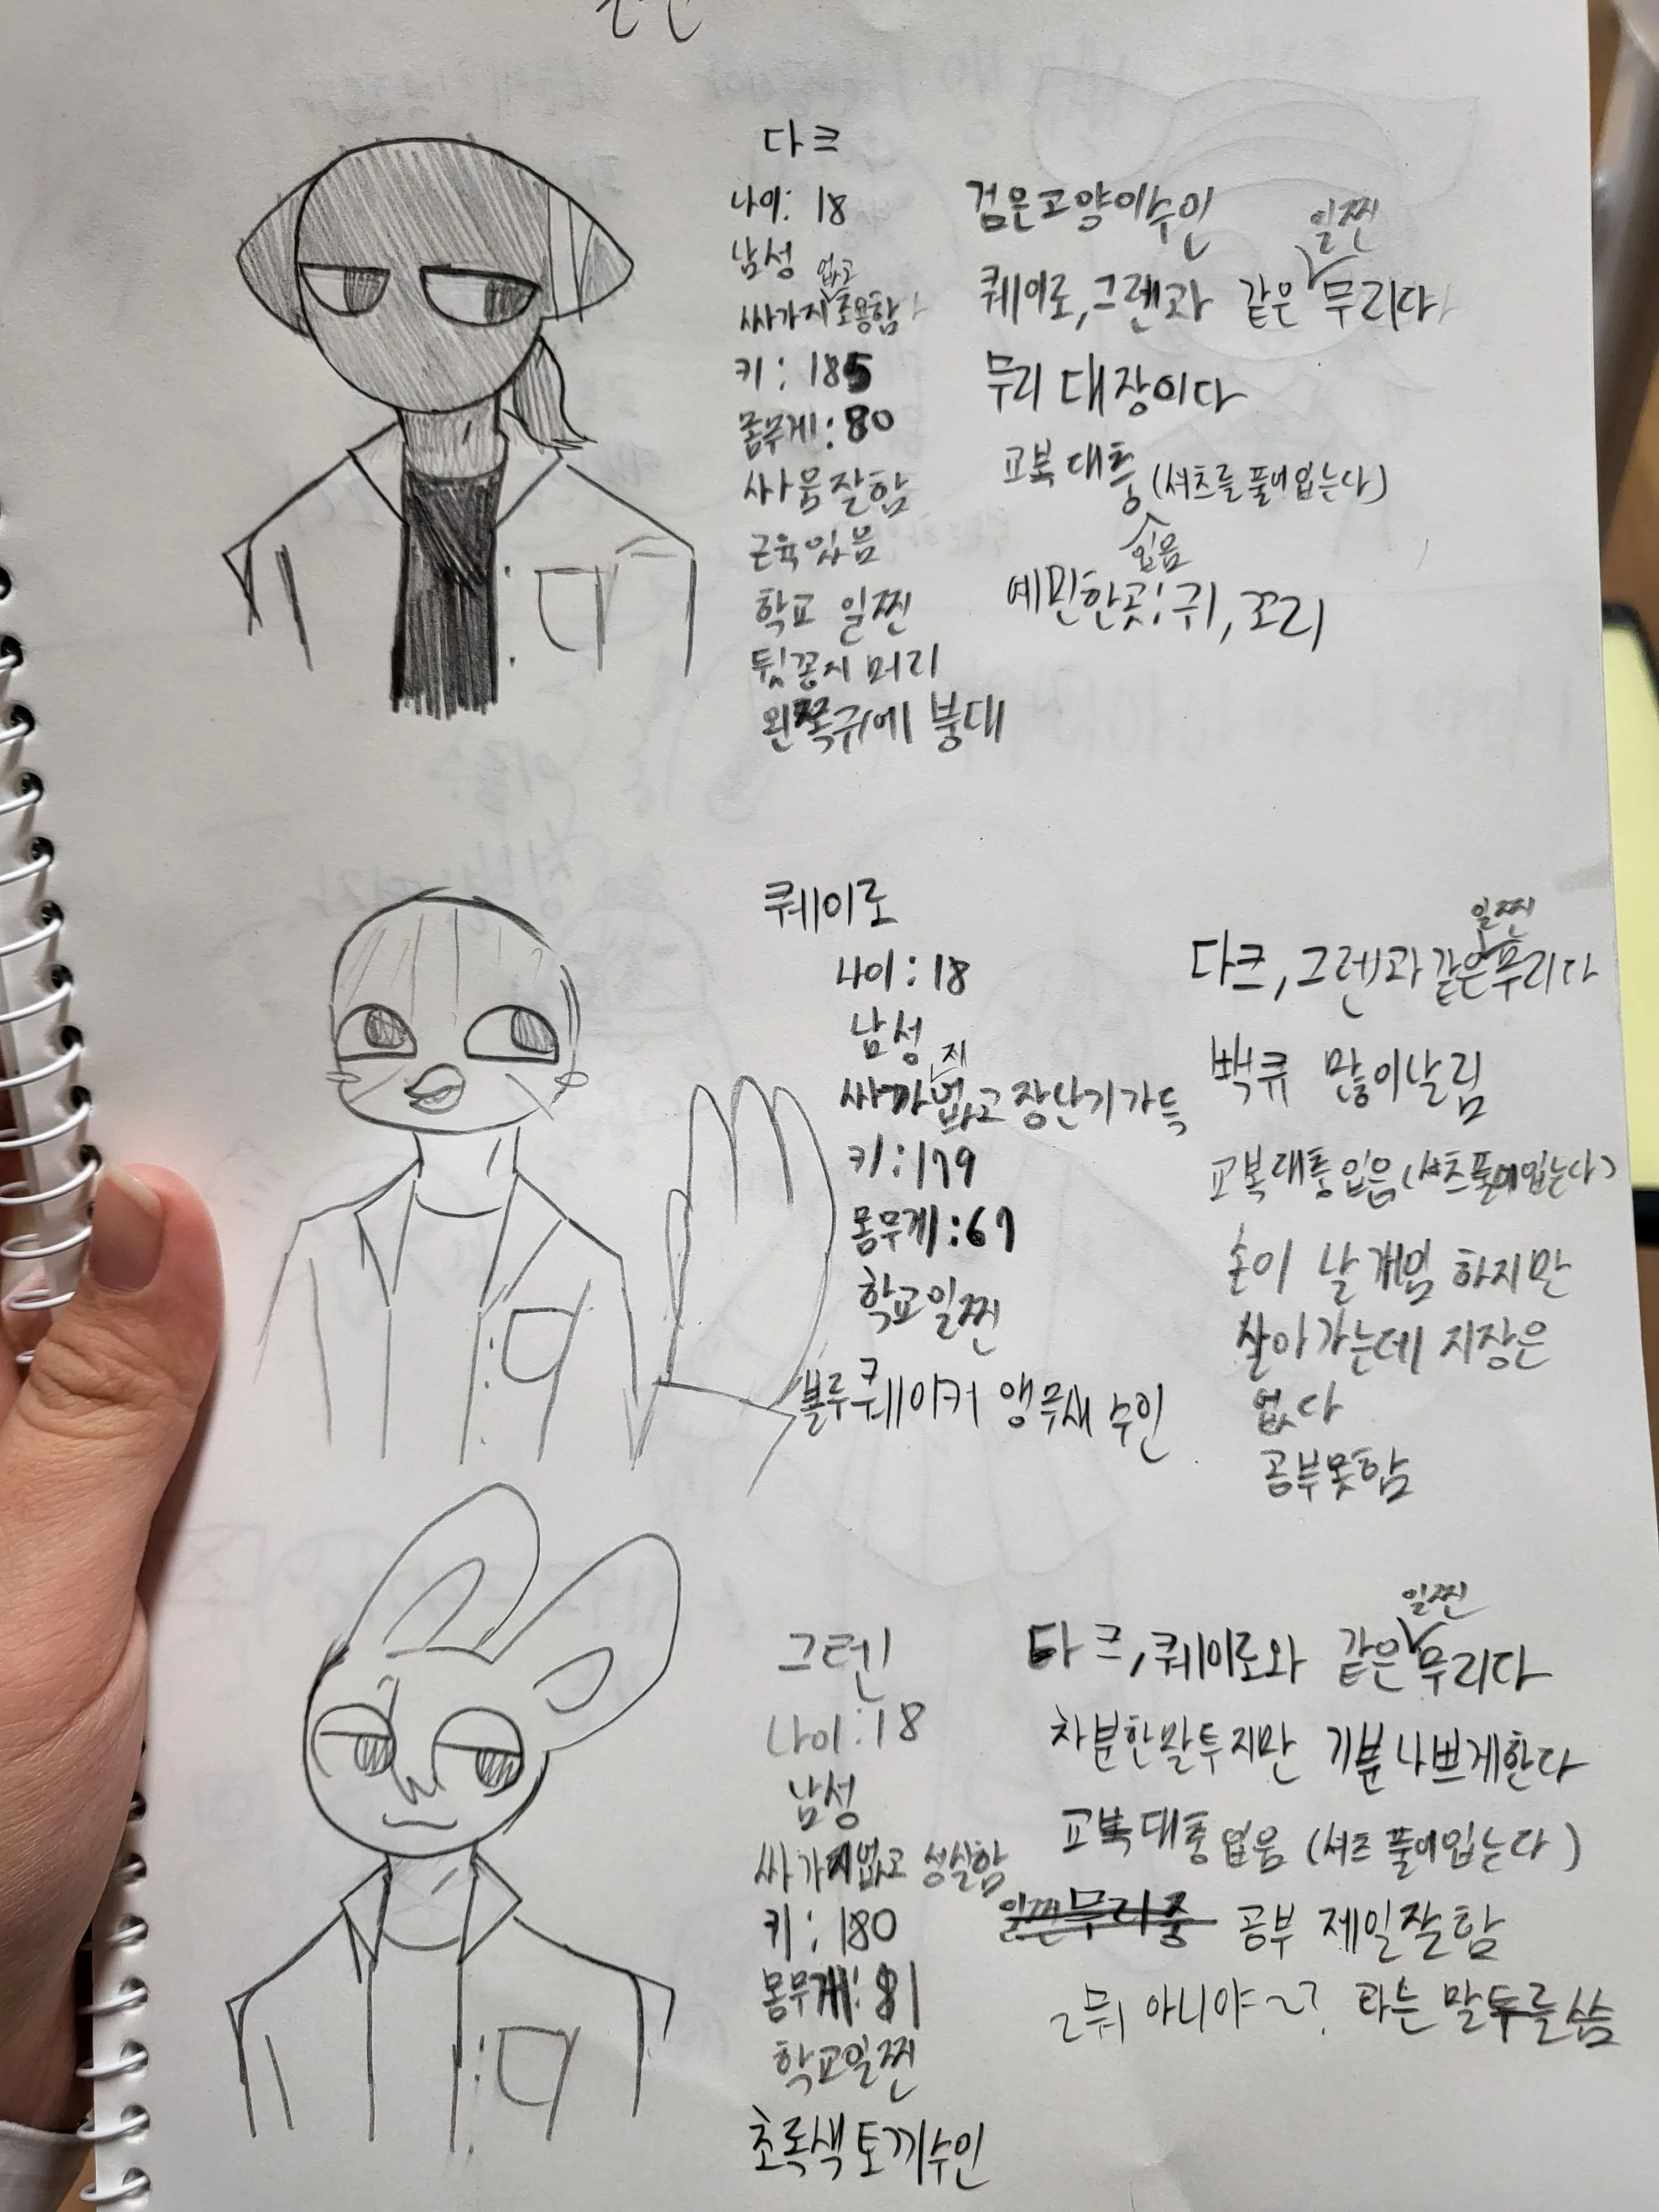 다크
나이: 18
남성
싸가지 없고 조용함
키: 185
몸무게: 80
싸움잘함
근육있음
학교 일찐
뒷꽁지 머리
왼쪽귀에 붕대
검은고양이수인
퀘이로,그렌과 같은 일찐 무리다
무리 대장이다
교복 대충 입음 (셔츠를 풀어입는다)
예민한곳: 귀, 꼬리
퀘이로
나이: 18
남성
싸가지없고 장난기가득
키: 179
몸무게: 67
학교일찐
블루퀘이커 앵무새 수인
다크, 그렌과 같은 일찐 무리다
뻑큐 많이날림
교복대충입음 (셔츠풀어입는다)
손이 날개임 하지만
살아가는데 지장은
없다
공부못함
그렌
나이: 18
남성
싸가지없고 성실함
키: 180
몸무게: 81
학교일찐
초록색토끼수인
다크, 퀘이로와 같은 일찐 무리다
차분한말투지만 기분나쁘게한다
교복대충입음 (셔츠풀어입는다)
일찐무리중 공부 제일잘함
~뭐 아니야~? 라는 말투를씀